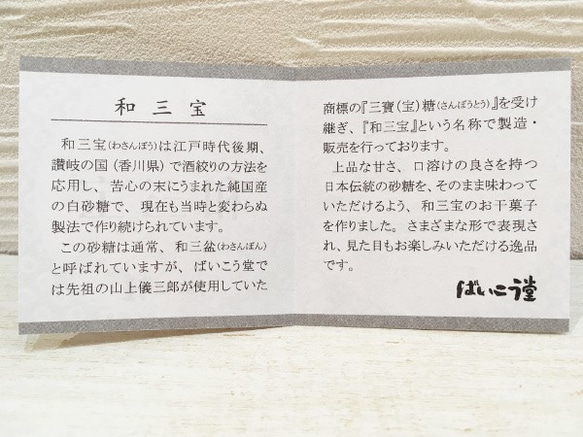 和三宝
和三宝(わさんぼう)は江戸時代後期、
讃岐の国(香川県)で酒絞りの方法を
応用し、苦心の末にうまれた純国産
の白砂糖で、現在も当時と変わらぬ
製法で作り続けられています。
この砂糖は通常、和三盆(わさんぼん)
と呼ばれていますが、ばいこう堂で
は先祖の山上儀三郎が使用していた
商標の『三寶(宝)糖(さんぼうとう)』を受け
継ぎ、『和三宝』という名称で製造・
販売を行っております。
上品な甘さ、口溶けの良さを持つ
日本伝統の砂糖を、そのまま味わって
いただけるよう、和三宝のお干菓子
を作りました。さまざまな形で表現さ
れ、見た目もお楽しみいただける逸品
です。
ばいこう堂